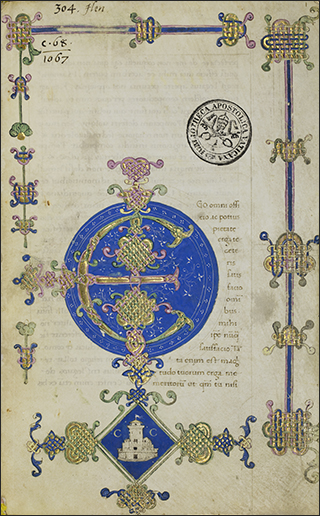 304.
1067
BIBLIOTHECA APOSTOLICA VATICANA
EGO omni offi
cio ac potius
pietate
erga te
cete
ris
satis
facio
omni
bus
mihi
ipē nūq̄
satisfacio Tā
ta enim est mag
nitudo tuorum erga me
meritorum ut qm̄ tu nisi
C C